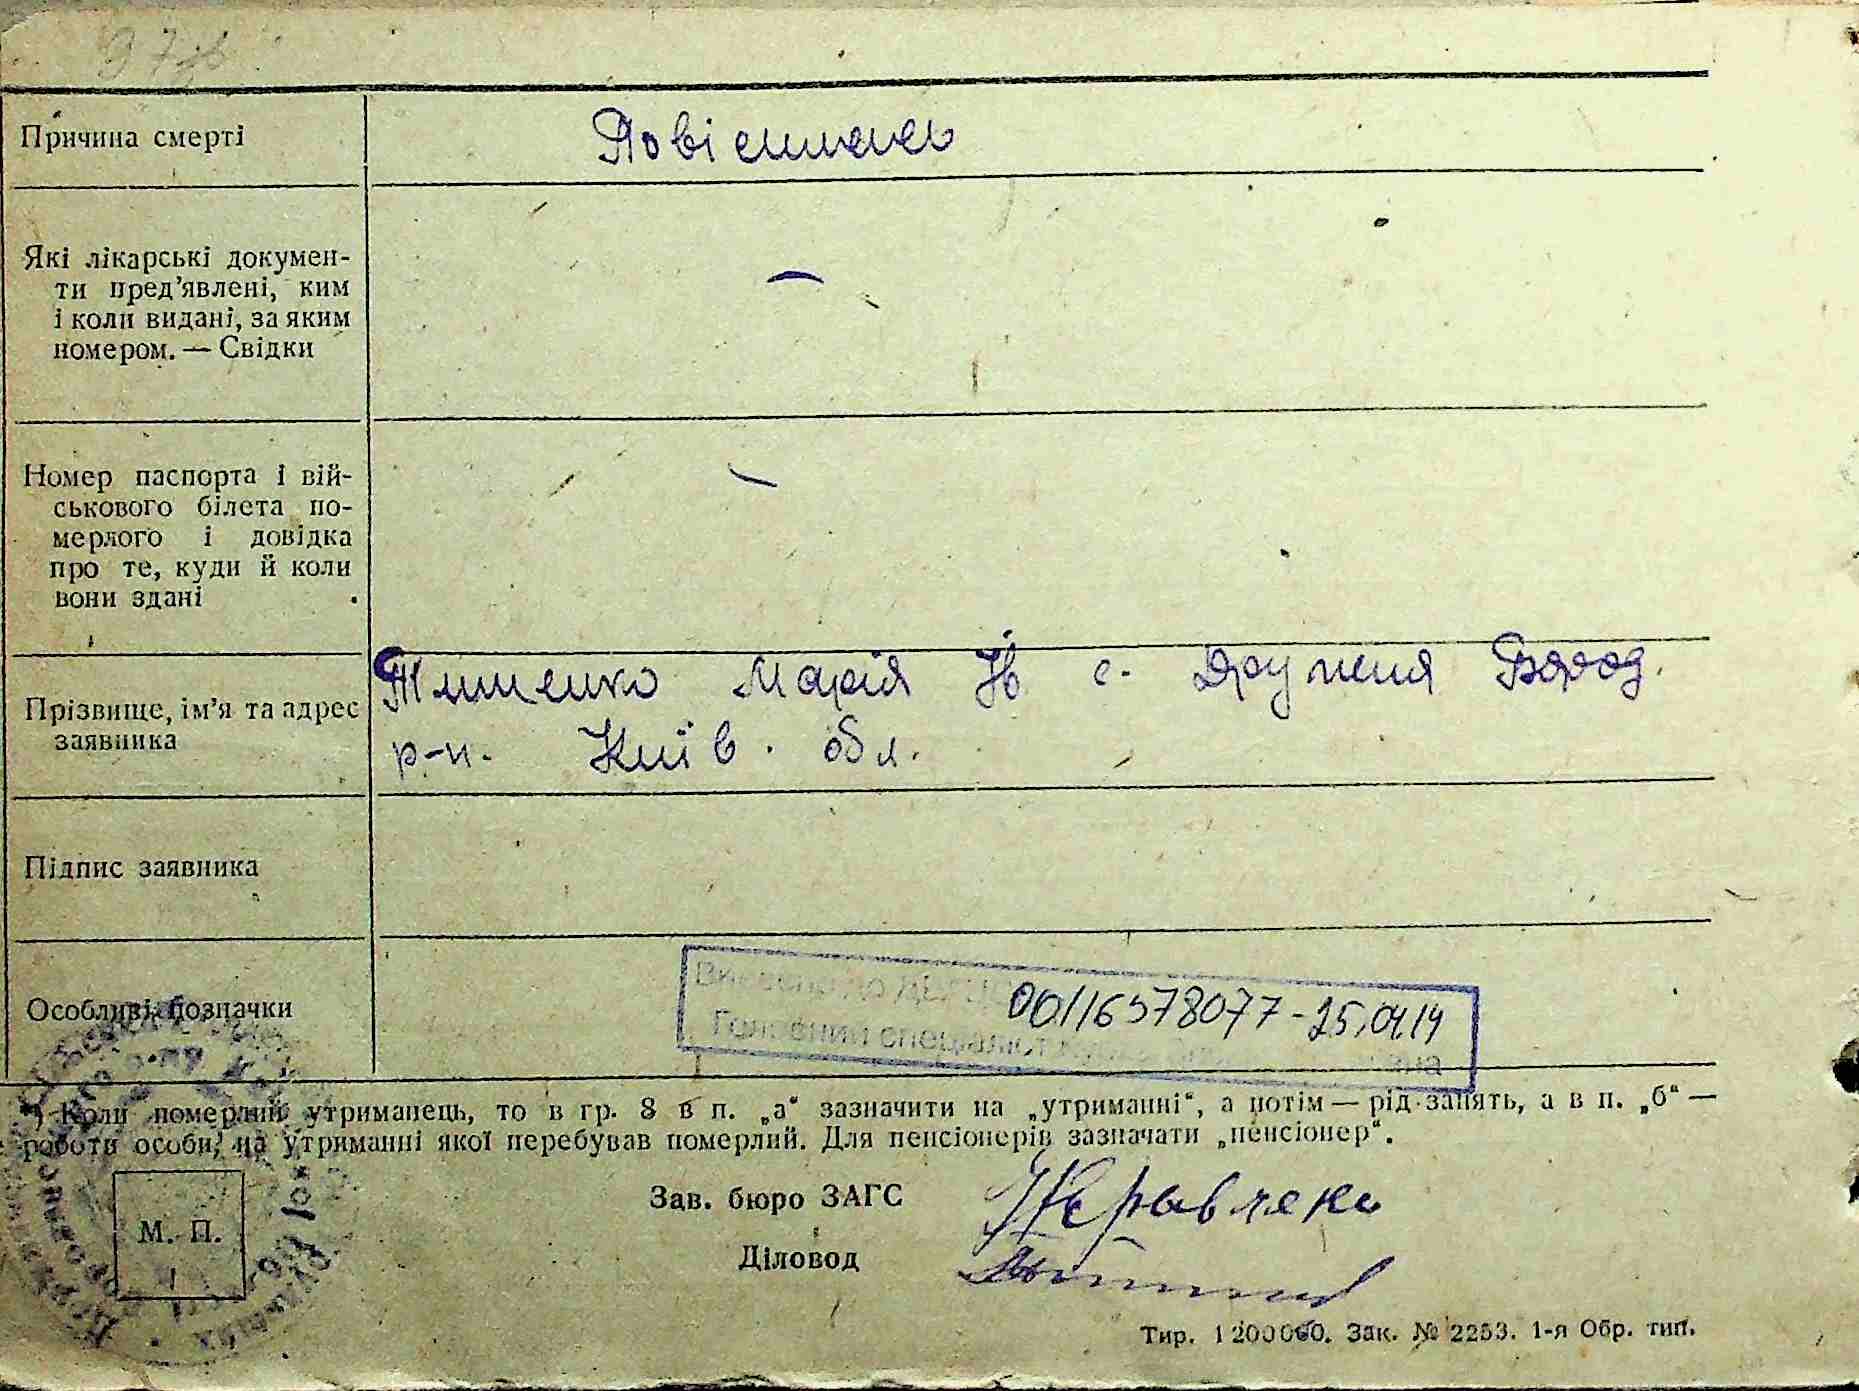 Причина смерті
Повісилась
Які лікарські докумен-
ти пред'явлені, ким
і коли видані, за яким
номером. — Свідки
—
Номер паспорта і вій-
ськового білета по-
мерлого і довідка
про те, куди й коли
вони здані
—
Прізвище, ім'я та адрес
заявника
Тищенко Марія Й с. Дружня Бород.
р-н. Київ. обл.
Підпис заявника
Особливі позначки
Внесено до
00116578077-25.04.14
Головний спеціаліст
*) Коли померлий утриманець, то в гр. 8 в п. „а“ зазначити на „утриманні“, а потім — рід занять, а в п. „б“ —
роботи особи, на утриманні якої перебував померлий. Для пенсіонерів зазначати „пенсіонер“.
М. П.
Зав. бюро ЗАГС
Діловод
Тир. 1 200000. Зак. № 2253. 1-я Обр. тип.